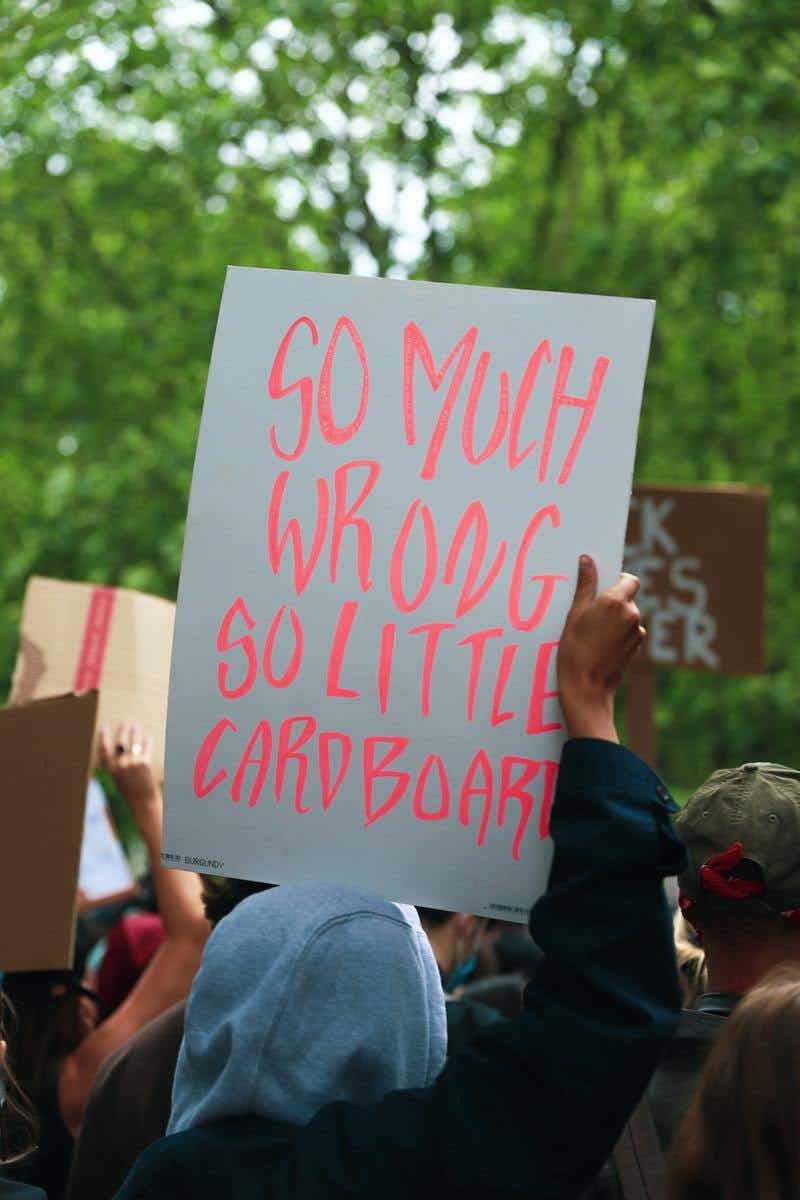 SO MUCH
WRONG
SO LITTLE
CARDBOARD
BURGUNDY
CK
ES
ER